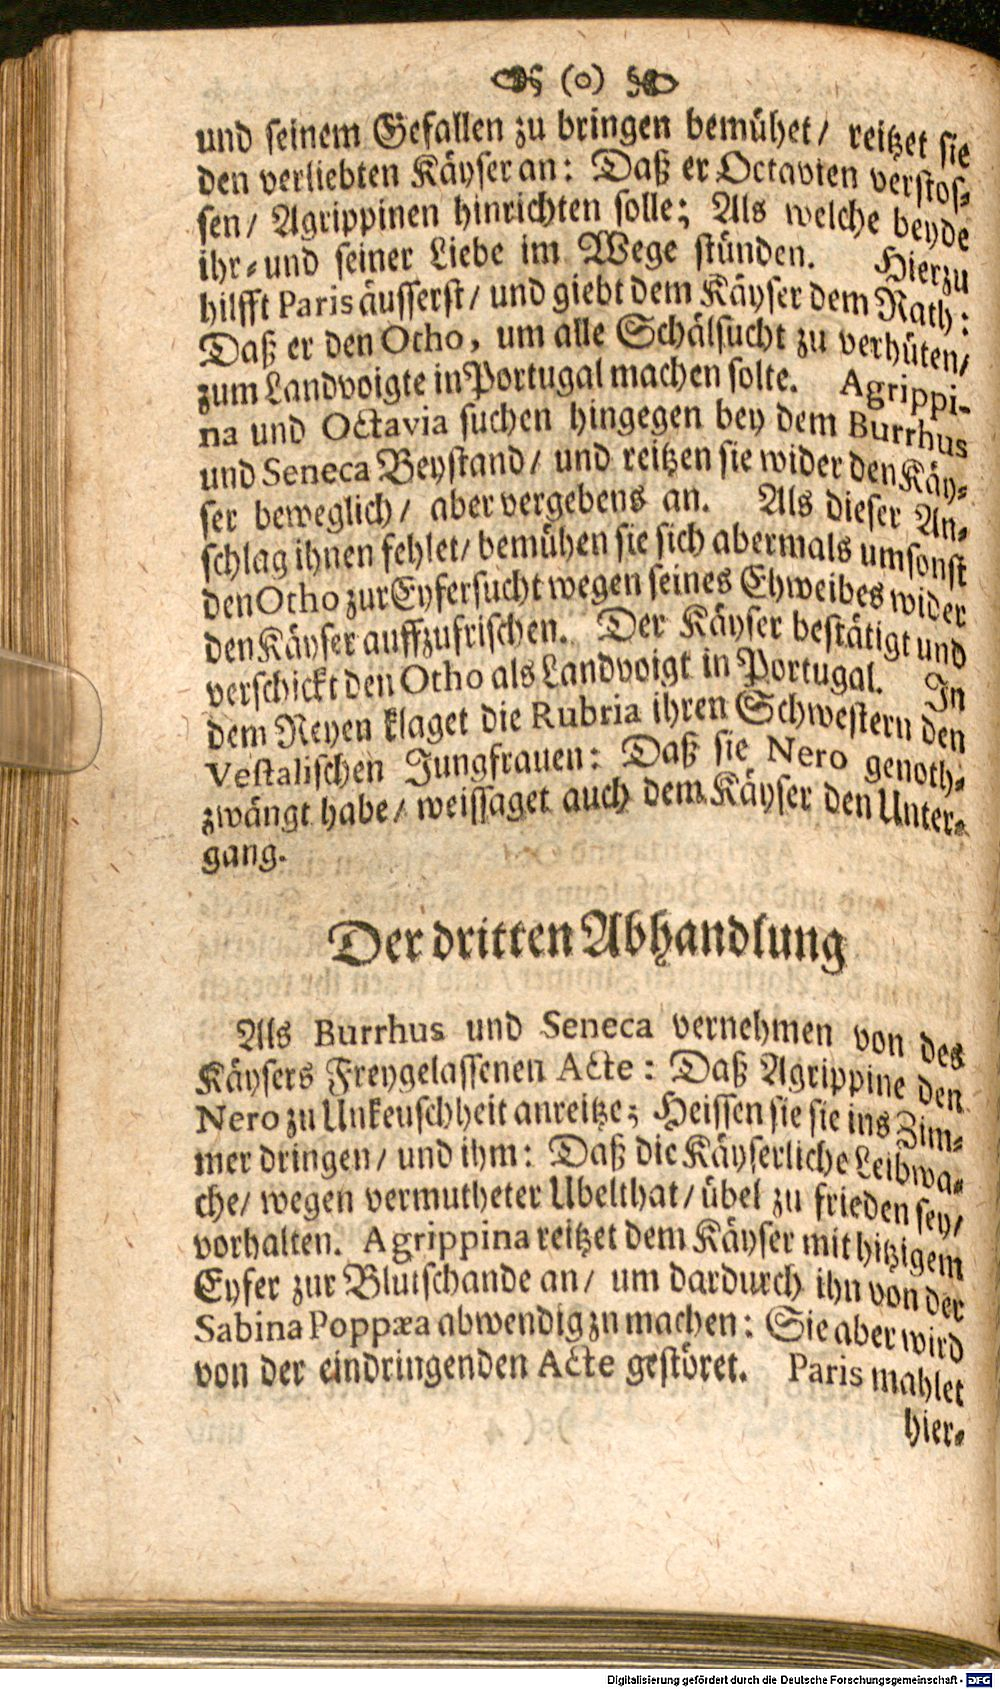 (o)
und seinem Gefallen zu bringen bemühet/ reitzet sie
den verliebten Käyser an: Daß er Octavien verstos-
sen/ Agrippinen hinrichten solle; Als welche beyde
ihr-und seiner Liebe im Wege stünden. Hierzu
hilfft Paris äusserst/ und giebt dem Käyser dem Rath:
Daß er den Otho, um alle Schälsucht zu verhüten/
zum Landvoigte in Portugal machen solte. Agrippi-
na und Octavia suchen hingegen bey dem Burrhus
und Seneca Beystand/ und reitzen sie wider den Käy-
ser beweglich/ aber vergebens an. Als dieser An-
schlag ihnen fehlet/ bemühen sie sich abermals umsonst
den Otho zur Eyfersucht wegen seines Ehweibes wider
den Käyser auffzufrischen. Der Käyser bestätigt und
verschickt den Otho als Landvoigt in Portugal. In
dem Reyen klaget die Rubria ihren Schwestern den
Vestalischen Jungfrauen: Daß sie Nero genoth-
zwängt habe/ weissaget auch dem Käyser den Unter-
gang.
Der dritten Abhandlung
Als Burrhus und Seneca vernehmen von des
Käysers Freygelassenen Acte: Daß Agrippine den
Nero zu Unkeuschheit anreitze; Heissen sie sie ins Zim-
mer dringen/ und ihm: Daß die Käyserliche Leibwa-
che/ wegen vermutheter Ubelthat/ übel zu frieden sey/
vorhalten. Agrippina reitzet dem Käyser mit hitzigem
Eyfer zur Blutschande an/ um dardurch ihn von der
Sabina Poppæa abwendig zu machen: Sie aber wird
von der eindringenden Acte gestöret. Paris mahlet
hier-
Digitalisierung gefördert durch die Deutsche Forschungsgemeinschaft - DFG